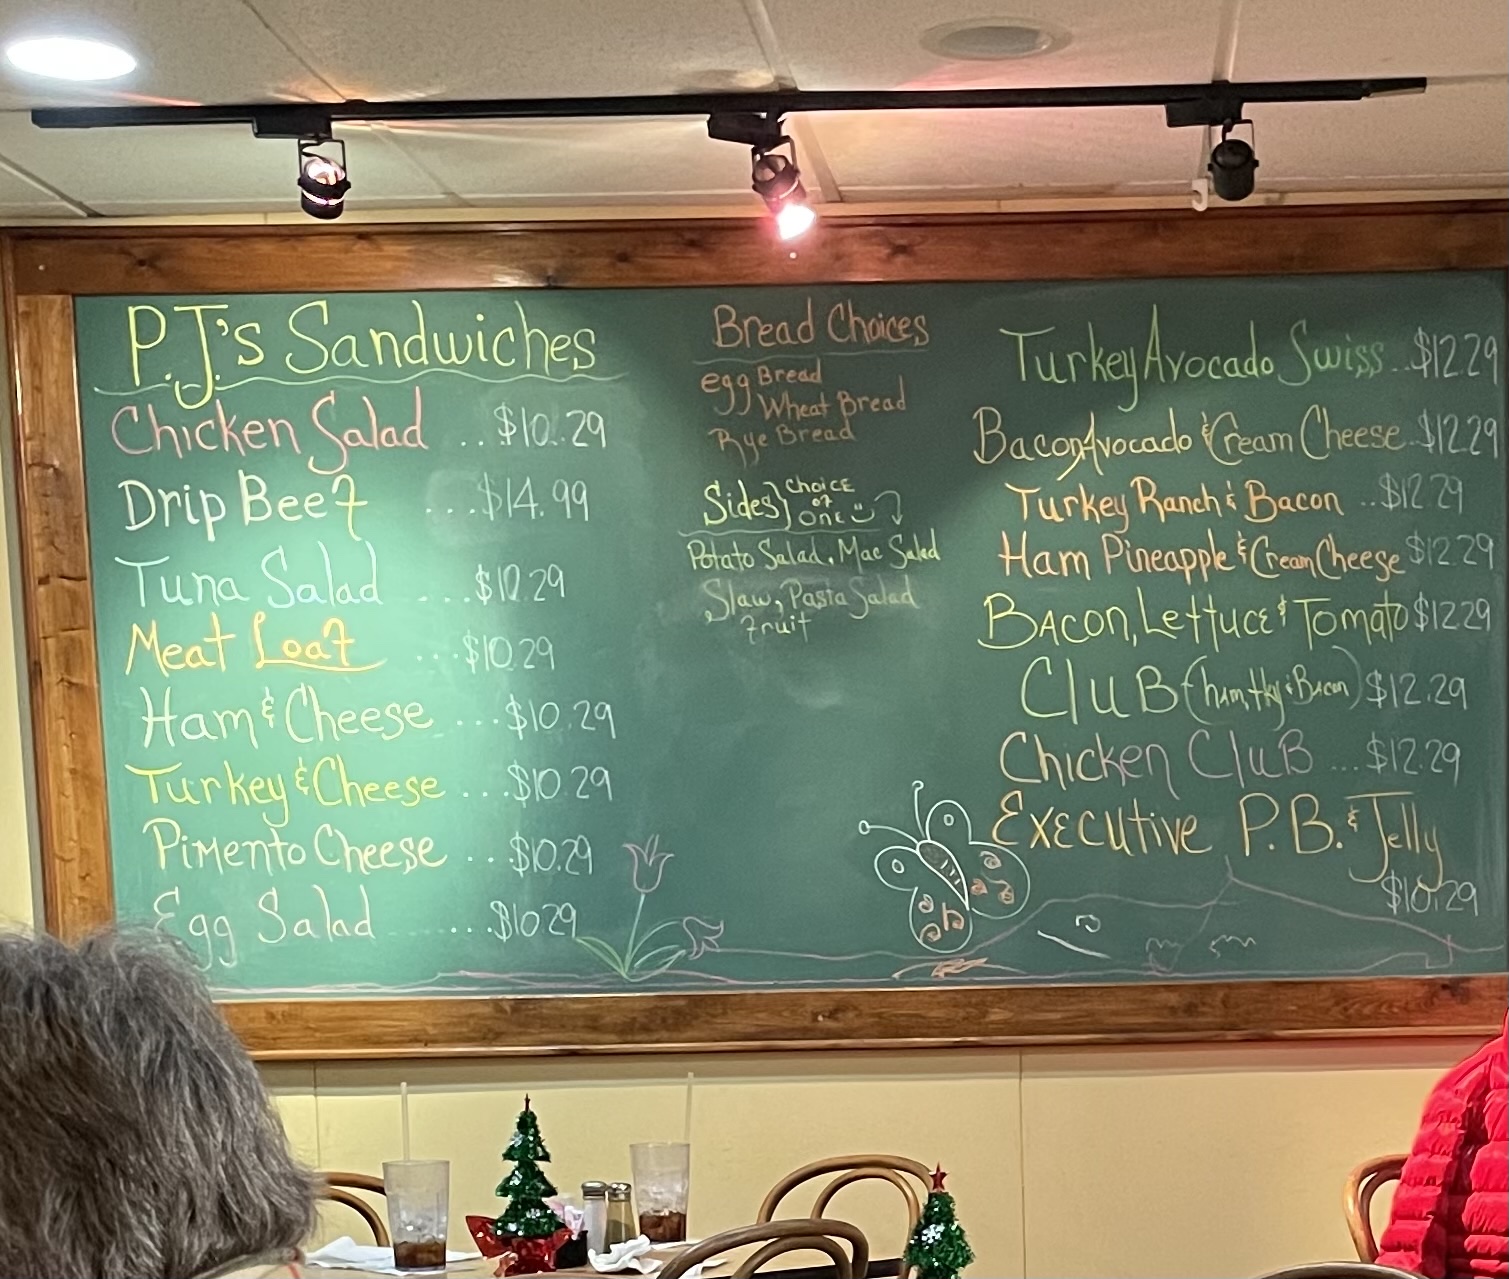 P.J.'s Sandwiches
Chicken Salad .. $10.29
Drip Beef ....$14.99
Tuna Salad ....$10.29
Meat Loaf ....$10.29
Ham & Cheese ...$10.29
Turkey & Cheese ...$10.29
Pimento Cheese ...$10.29
Egg Salad .......$10.29
Bread Choices
egg Bread
Wheat Bread
Rye Bread
Sides} CHOICE
of
ONE
Potato Salad, Mac Salad
Slaw, Pasta Salad
Fruit
Turkey Avocado Swiss...$12.29
Bacon, Avocado & Cream Cheese..$12.29
Turkey Ranch & Bacon ...$12.29
Ham Pineapple & Cream Cheese $12.29
BACON, Lettuce & Tomato $12.29
CluB (ham, tky & Bacon) $12.29
Chicken CluB ....$12.29
Executive P.B. & Jelly
$10.29